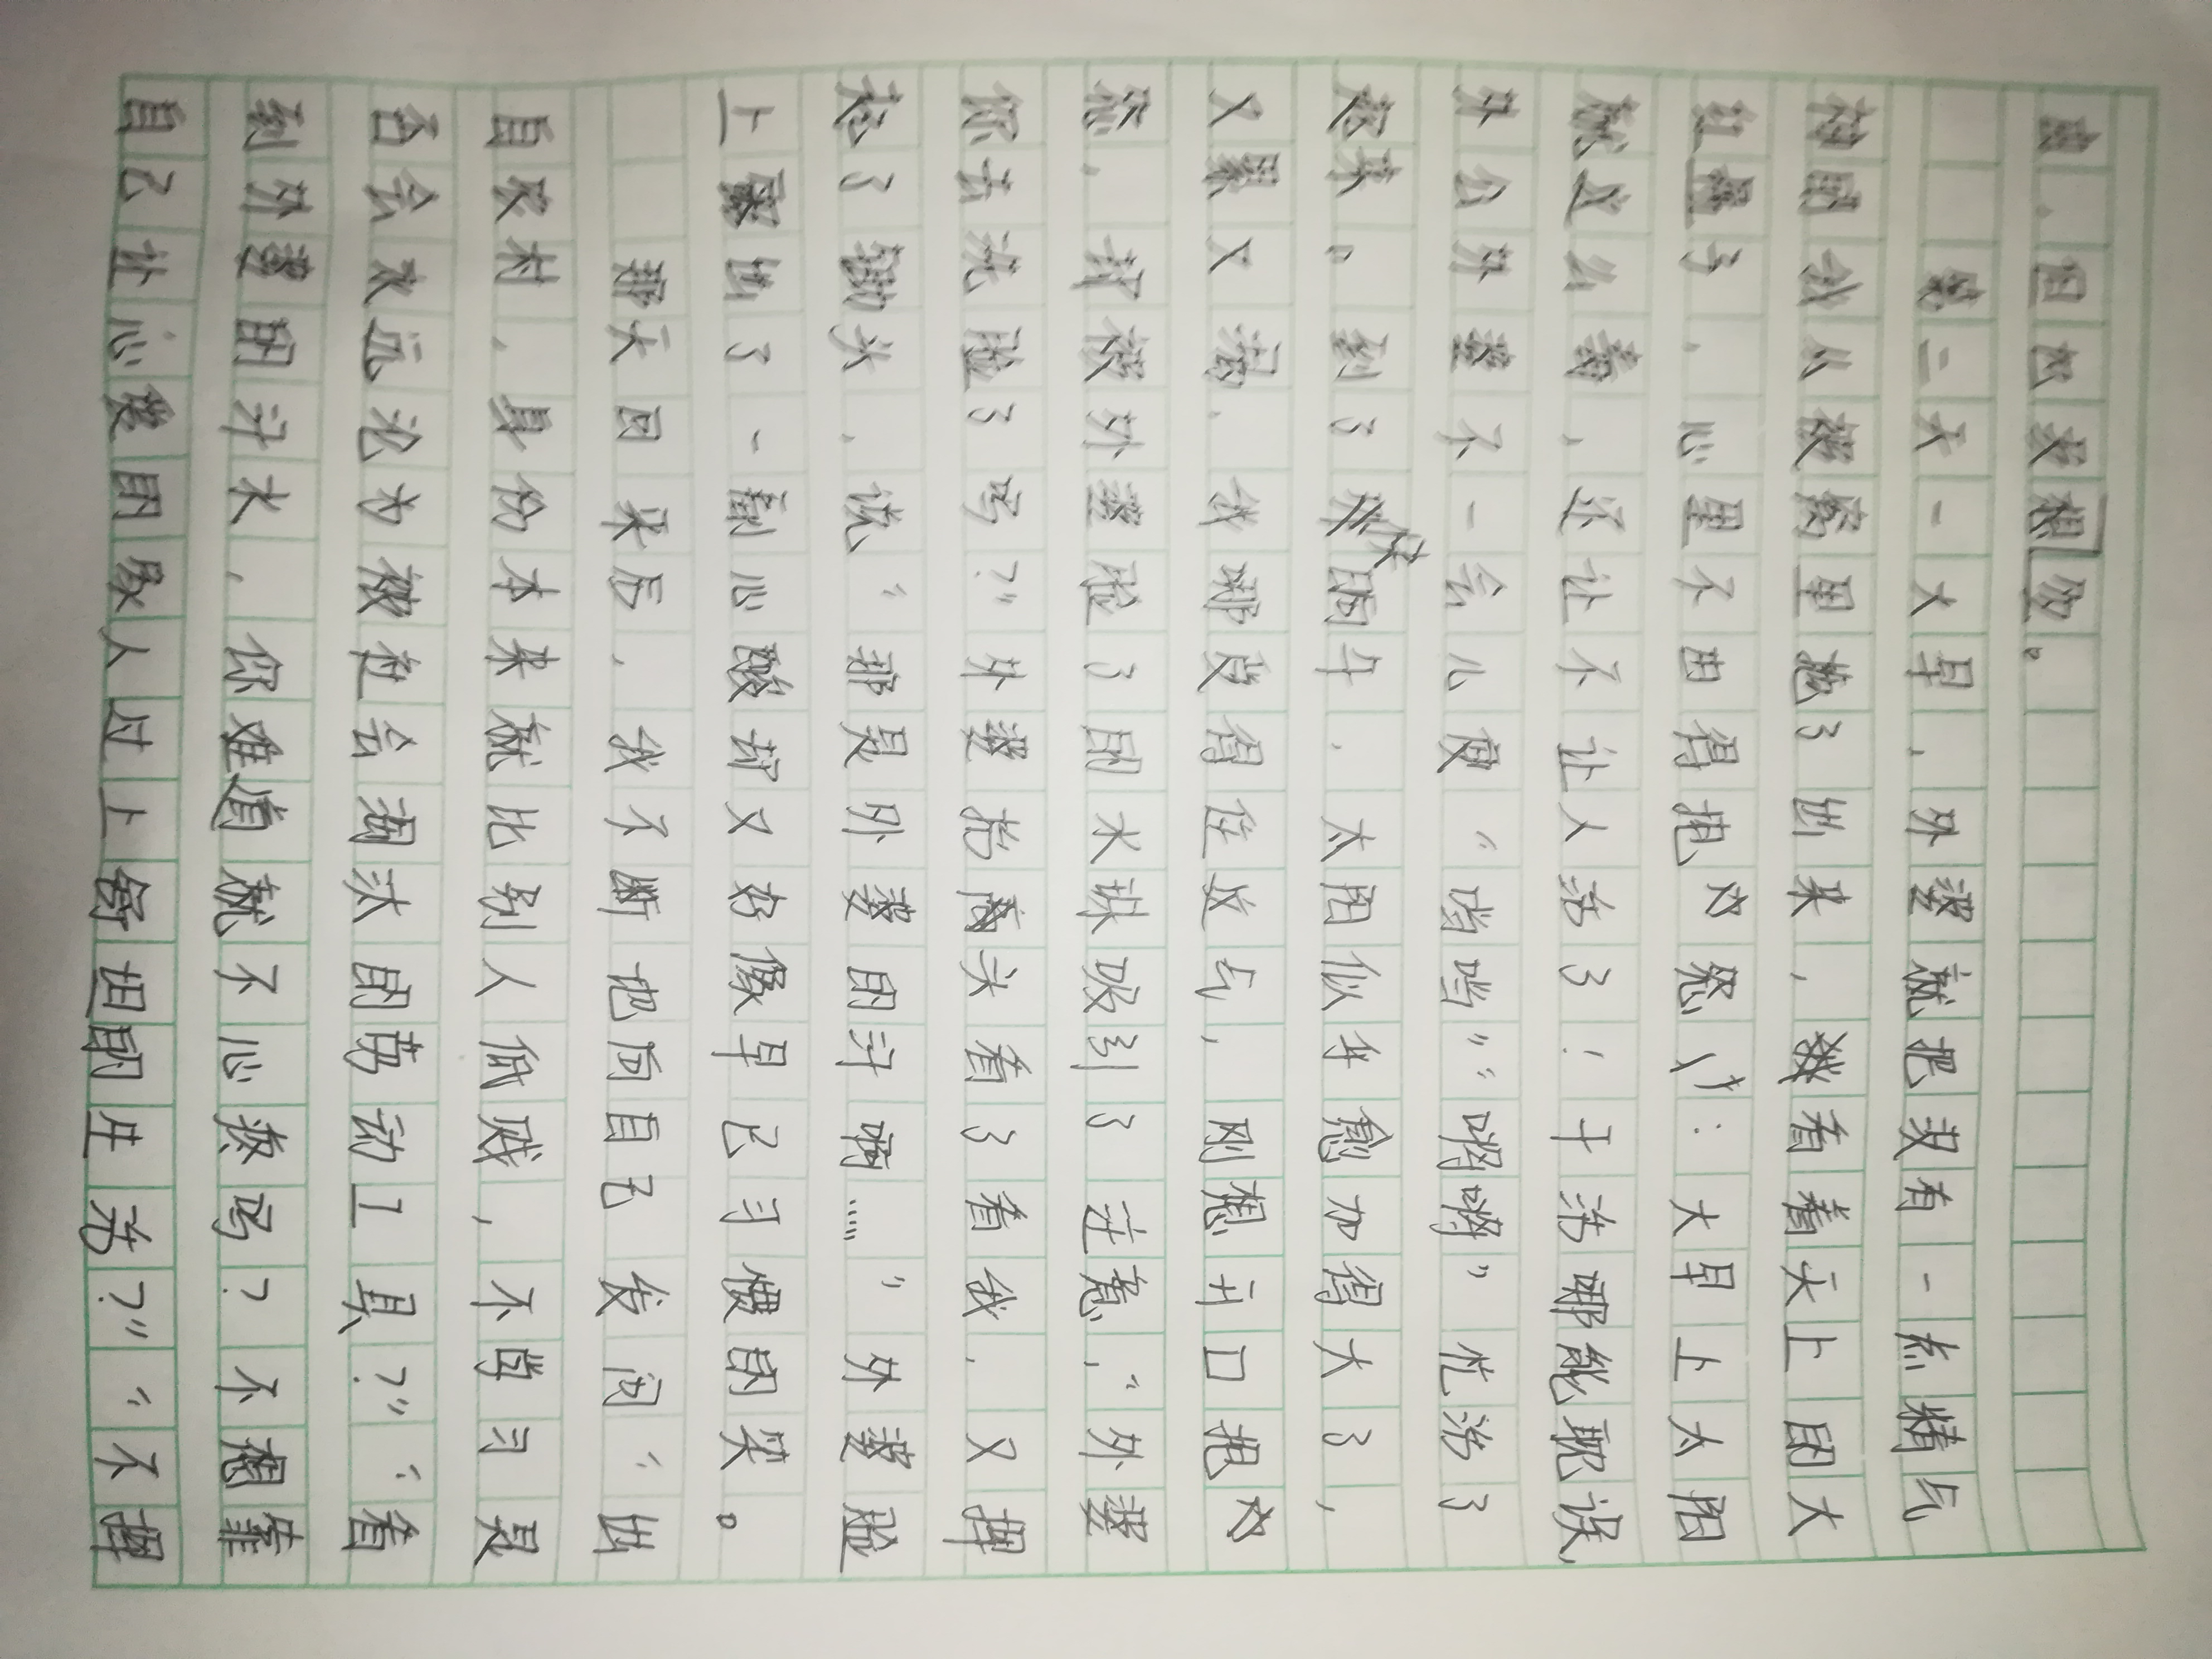 真，但也没想做。
第二天一大早，外婆就把没有一点精气
神的我从被窝里拖了出来，看着天上的大
红晕子，心里不由得抱怨到：大早上太阳
就这么毒，还让不让人活了！干活哪能耽误，
外公外婆不一会儿便“”“”忙活了
起来。到了晌午，太阳似乎愈加得大了，
又累又渴，我哪受得住这气，刚想开口抱
怨，却被外婆脸了的水珠吸引了注意，“外婆
你去洗脸了吗？”外婆抬头看了看我，又挥
起了锄头，说“那是外婆的汗啊……”外婆脸
上露出了一副心酸却又好像早已习惯的笑。
那天回来后，我不断地向自己发问“出
自农村，身份本来就比别人低贱，不学习是
否会永远沦为被社会淘汰的劳动工具？”“看
到外婆的汗水，你难道就不心疼吗？不想靠
自己让心爱的家人过上舒坦的生活？”“不挥